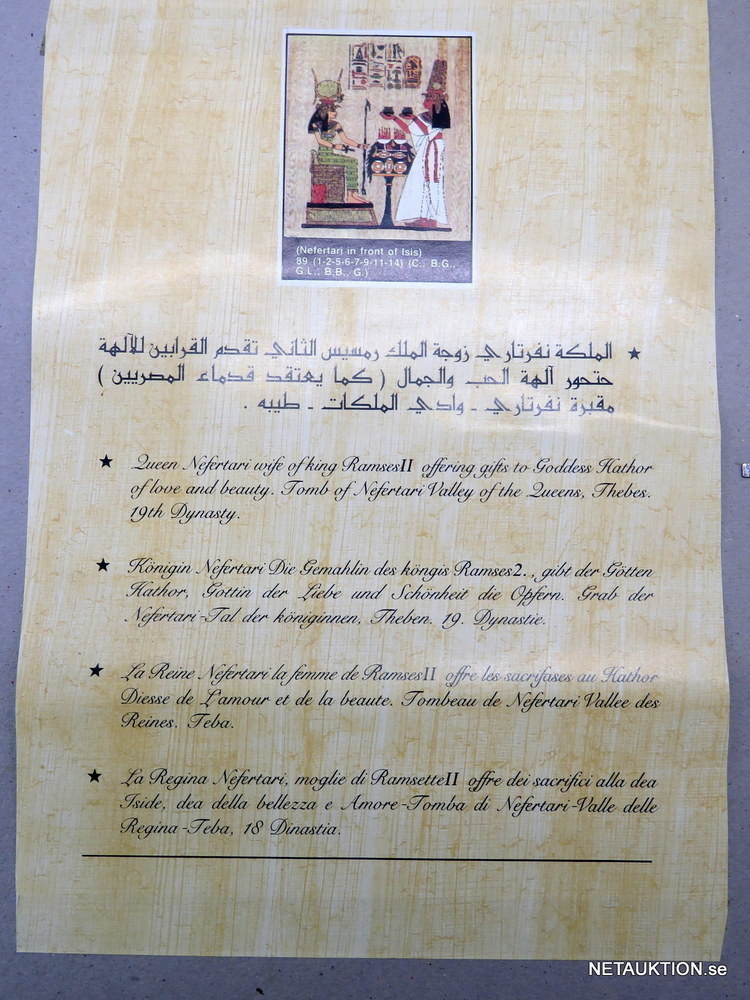 (Nefertari in front of Isis)
89 (1-2-5-6-7-9-11-14) (C., B.G.,
G.L., B.B., G.)
★ الملكة نفرتاري زوجة الملك رمسيس الثاني تقدم القرابين للآلهة
حتحور آلهة الحب والجمال ( كما يعتقد قدماء المصريين )
مقبرة نفرتاري - وادي الملكات - طيبه .
★ Queen Nefertari wife of king RamsesII offering gifts to Goddess Hathor
of love and beauty. Tomb of Nefertari Valley of the Queens, Thebes.
19th Dynasty.
★ Königin Nefertari Die Gemahlin des köngis Ramses2. , gibt der Götten
Hathor, Gottin der Liebe und Schönheit die Opfern. Grab der
Nefertari-Tal der königinnen, Theben. 19. Dynastie.
★ La Reine Nefertari la femme de RamsesII offre les sacrifases au Hathor
Diesse de L'amour et de la beaute. Tombeau de Nefertari Vallee des
Reines. Teba.
★ La Regina Nefertari, moglie di RamsetteII offre dei sacrifici alla dea
Iside, dea della bellezza e Amore-Tomba di Nefertari-Valle delle
Regina-Teba, 18 Dinastia.
NETAUKTION.se